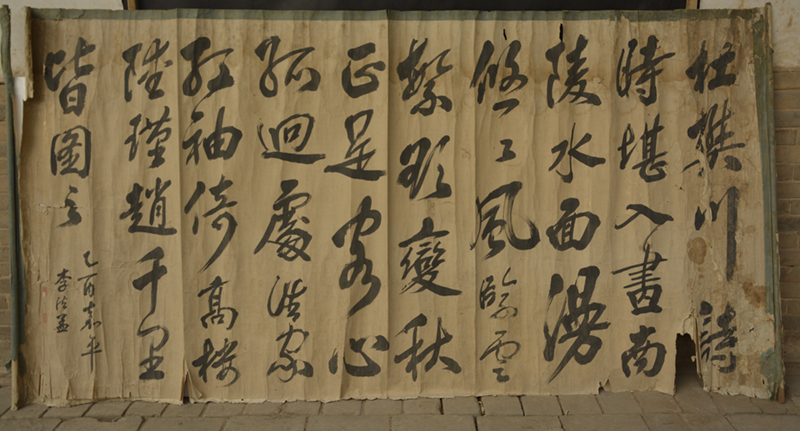 杜樊川詩
時堪入畫南
陵水面漫
悠々風緊雲
繁欲變秋
正是客心
孤迥處誰家
紅袖倚高樓
陸瑾趙千里
皆圖之
乙酉嘉平
李